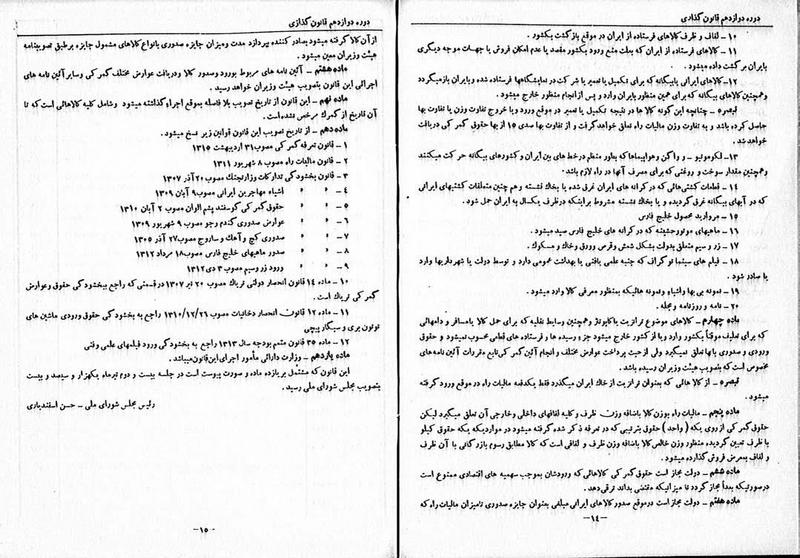 دوره دوازدهم قانون گذاری
۱۰ – لفاف و ظرف کالاهای فرستاده از ایران در موقع بازگشت بکشور .
۱۱ – کالاهای فرستاده از ایران که بعلت منع ورود بکشور مقصد یا عدم امکان فروش یا جهات موجه دیگری
بایران برگشت داده میشود .
۱۲ – کالاهای ایرانی یا بیگانه که برای تکمیل یا تعمیر یا شرکت در نمایشگاهها فرستاده شده و بایران باز میگردد
و همچنین کالاهای بیگانه که برای همین منظور بایران وارد و پس از انجام منظور خارج میشود .
تبصره – چنانچه این گونه کالاها در نتیجه تکمیل یا تعمیر در موقع ورود و یا خروج تفاوت وزن یا تفاوت بها
حاصل کرده باشد و به تفاوت وزن مالیات راه تعلق خواهد گرفت و از تفاوت بها صدی ۱۵ از بها حقوق گمرکی دریافت
خواهد شد .
۱۳ – لکوموتیو – و واگن و هواپیماها که بطور منظم در خط های بین ایران و کشورهای بیگانه حرکت میکنند
و همچنین مقدار سوخت و روغنی که برای مصرف آنها در راه لازم باشد .
۱۴ – قطعات کشتی هائی که در کرانه های ایران غرق شده یا بخاک نشسته و هم چنین متعلقات کشتیهای ایرانی
که در آبهای بیگانه غرق گردیده و یا بخاک نشسته مشروط براینکه در ظرف یکسال به ایران حمل شود .
۱۵ – مروارید محصول خلیج فارس
۱۶ – ماهیهای موتورجشیته که در کرانه های خلیج فارس صید میشود .
۱۷ – زر و سیم متعلق بدولت بشکل شمش و قرص و ورق و خاک و مسکوک .
۱۸ – فیلم های سینما توگراف که جنبه علمی یافتی یا بهداشت عمومی دارد و توسط دولت یا شهرداریها وارد
یا صادر شود .
۱۹ – نمونه بی بها و اشیاء و نمونه هائیکه بمنظور معرفی کالا وارد میشود .
۲۰ – نامه و روزنامه و مجله .
ماده چهارم – کالاهای موضوع ترانزیت یا کابوتاژ و همچنین وسایط نقلیه که برای حمل کالا یا مسافر و دامهائی
که برای تعلیف موقتاً بکشور وارد و یا از کشور خارج میشود جزو رسیده ها و فرستاده های قطعی محسوب نمیشود و حقوق
ورودی و صدوری بآنها تعلق نمیگیرد ولی از حیث پرداخت عوارض مختلف و انجام آئین گمرکی تابع مقررات آئین نامه های
مخصوص است که بتصویب هیئت وزیران رسیده باشد .
تبصره – از کالا هائی که بعنوان ترانزیت از خاک ایران میگذرد فقط یکدفعه مالیات راه در موقع ورود گرفته
میشود .
ماده پنجم – مالیات راه بوزن کالا باضافه وزن ظرف و کلیه لفافهای داخلی و خارجی آن تعلق میگیرد لیکن
حقوق گمرکی از روی یکه ( واحد ) حقوق بترتیبی که در تعرفه ذکر شده گرفته میشود در مواردیکه یکه حقوق کیلو
با ظرف تعیین گردیده منظور وزن خالص کالا باضافه وزن ظرف و لفافی است که کالا مطابق رسوم بازرگانی با آن ظرف
و لفاف بمعرض فروش گذارده میشود .
ماده ششم – دولت مجاز است حقوق گمرکی کالاهائی که ورودشان بموجب سهمیه های اقتصادی ممنوع است
در صورتیکه بعداً مجاز گردد تا میزانیکه مقتضی بداند ترقی دهد .
ماده هفتم – دولت مجاز است در موقع صدور کالاهای ایرانی مبلغی بعنوان جایزه صدوری تا میزان مالیات راه که
–۱۴–
دوره دوازدهم قانون گذاری
از آن کالا گرفته میشود بصادر کننده بپردازد مدت و میزان جایزه صدوری با نواع کالاهای مشمول جایزه بر طبق تصویبنامه
هیئت وزیران معین میشود .
ماده هشتم – آئین نامه های مربوط بورود و صدور کالا و دریافت عوارض مختلف گمرکی و سایر آئین نامه های
اجرائی این قانون بتصویب هیئت وزیران خواهد رسید .
ماده نهم – این قانون از تاریخ تصویب بلا فاصله بموقع اجراء گذاشته میشود و شامل کلیه کالاهائی است که تا
آن تاریخ از گمرک مرخص نشده است .
ماده دهم – از تاریخ تصویب این قانون قوانین زیر نسخ میشود .
۱ – قانون تعرفه گمرکی مصوب ۳۱ اردیبهشت ۱۳۱۵
۲ – قانون مالیات راه مصوب ۸ شهریور ۱۳۱۱
۳ – قانون بخشودگی تدارکات وزارتجنگ مصوب ۲۰ آذر ۱۳۰۷
۴ – » » اشیاء مهاجرین ایرانی مصوب ۹ آبان ۱۳۰۹
۵ – » » حقوق گمرکی گوسفند پشم الوان مصوب ۲ آبان ۱۳۱۰
۶ – » » عوارض صدوری گندم و جو مصوب ۹ شهریور ۱۳۰۹
۷ – » » صدوری گچ و آهک و ساروج مصوب ۲۷ آذر ۱۳۰۵
۸ – » » صدور ماهیهای خلیج فارس مصوب ۱۸ مرداد ۱۳۱۲
۹ – » » ورود زر و سیم مصوب ۳ دی ۱۳۱۲
۱۰ – ماده ۱۴ قانون انحصار دولتی تریاک مصوب ۲۰ تیر ۱۳۰۷ در قسمتی که راجع ببخشودگی حقوق و عوارض
گمرکی تریاک است .
۱۱ – ماده ۱۲ قانون انحصار دخانیات مصوب ۱۳۱۰/۱۲/۲۶ راجع به بخشودگی حقوق ورودی ماشین های
توتون بری و سیگار پیچی
۱۲ – ماده ۳۵ قانون متمم بودجه سال ۱۳۱۳ راجع به بخشودگی ورود فیلمهای علمی و فنی
ماده یازدهم – وزارت دارائی مأمور اجرای این قانون میباشد .
این قانون که مشتمل بر یازده ماده و صورت پیوست است در جلسه بیست و دوم تیرماه یکهزار و سیصد و بیست
بتصویب مجلس شورای ملی رسید .
رئیس مجلس شورای ملی – حسن اسفندیاری
–۱۵–